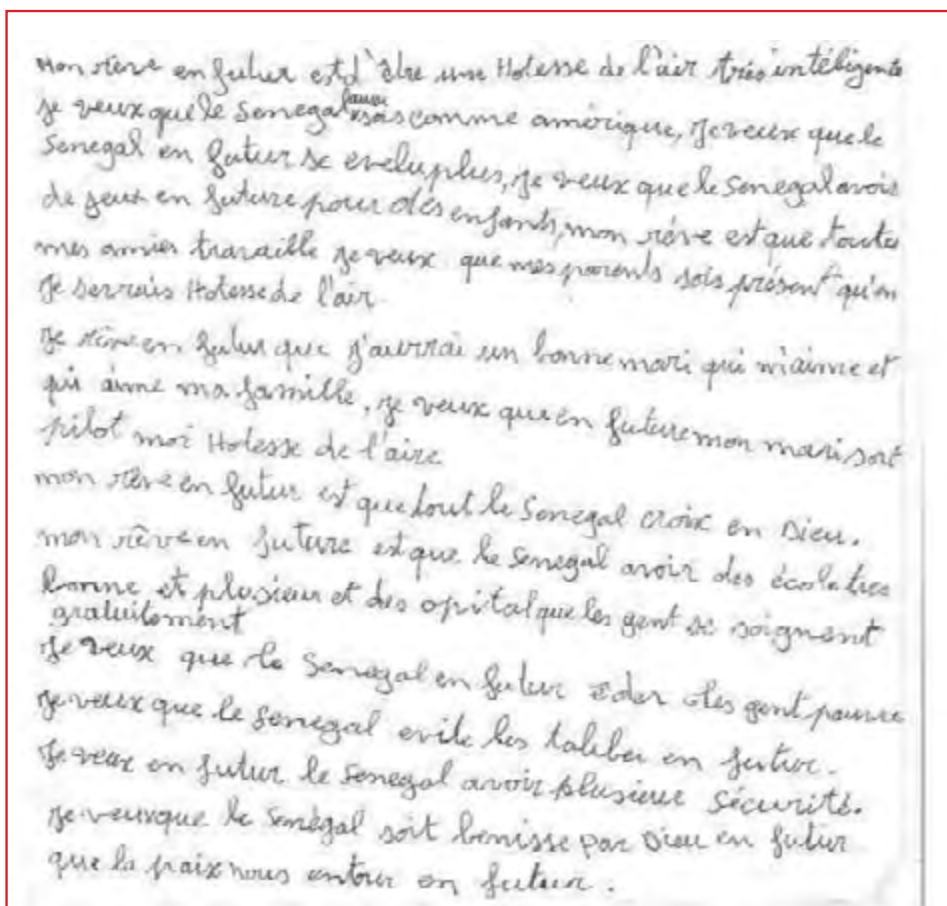 Mon rêve en futur est d'être une Hotesse de l'air très intéligente
je veux que le Senegal aussi sois comme amérique, je veux que le
Senegal en futur se evelu plus, je veux que le Senegal avois
de jeux en future pour des enfants, mon rêve est que toutes
mes amies travaille je veux que mes parents sois présent qu'en
je serrais Hotesse de l'air
Je rêve en futur que j'aurrai un bonne mari qui m'aime et
qui aime ma famille, je veux que en future mon mari soit
pilot moi Hotesse de l'aire
mon rêve en futur est que tout le Senegal croix en Dieu.
mon rêve en future est que le Senegal avoir des école tres
bonne et plusieur et des opital que les gent se soignent
gratuitement
Je veux que le Senegal en futur eder les gent pauvre
je veux que le Senegal evite les talibe en futur.
Je veux en futur le Senegal avoir plusieur sécurité.
je veux que le Senégal soit benisse par Dieu en futur
que la paix nous entour en futur.